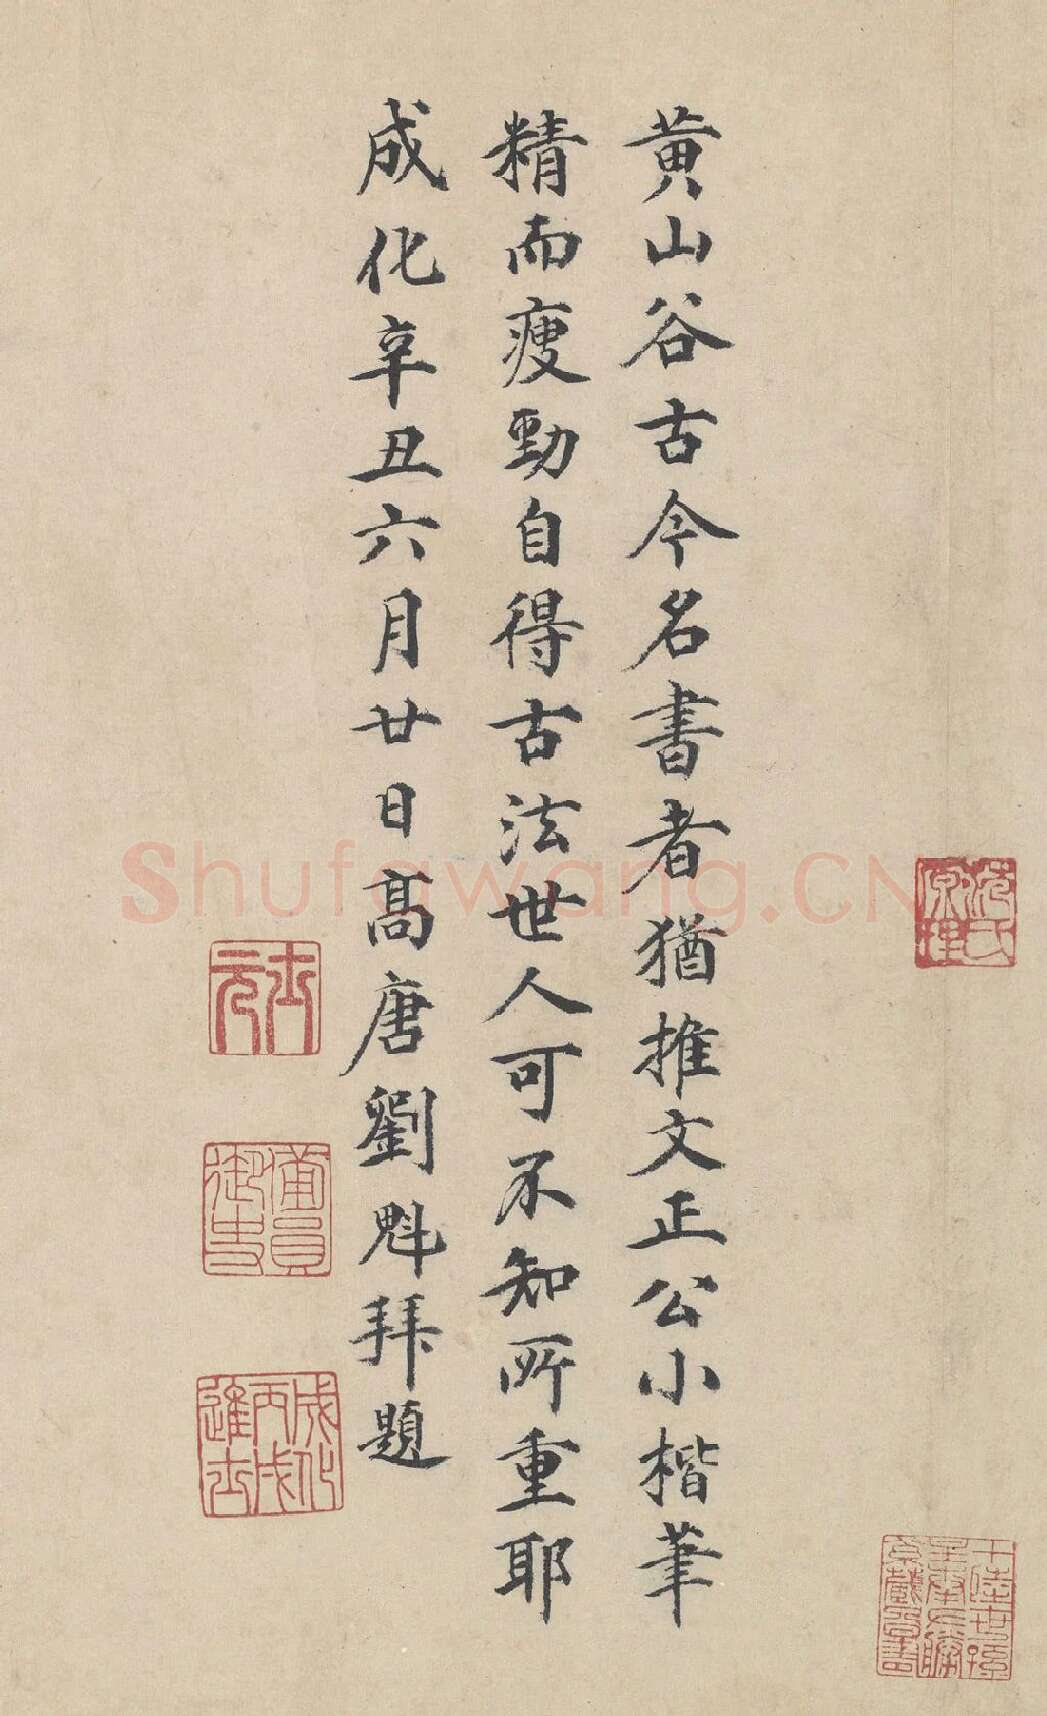 黄山谷古今名書者猶推文正公小楷筆
精而瘦勁自得古法世人可不知所重耶
成化辛丑六月廿日髙唐劉魁拜題
士元
成化丙戌進士
Shufawang.CN